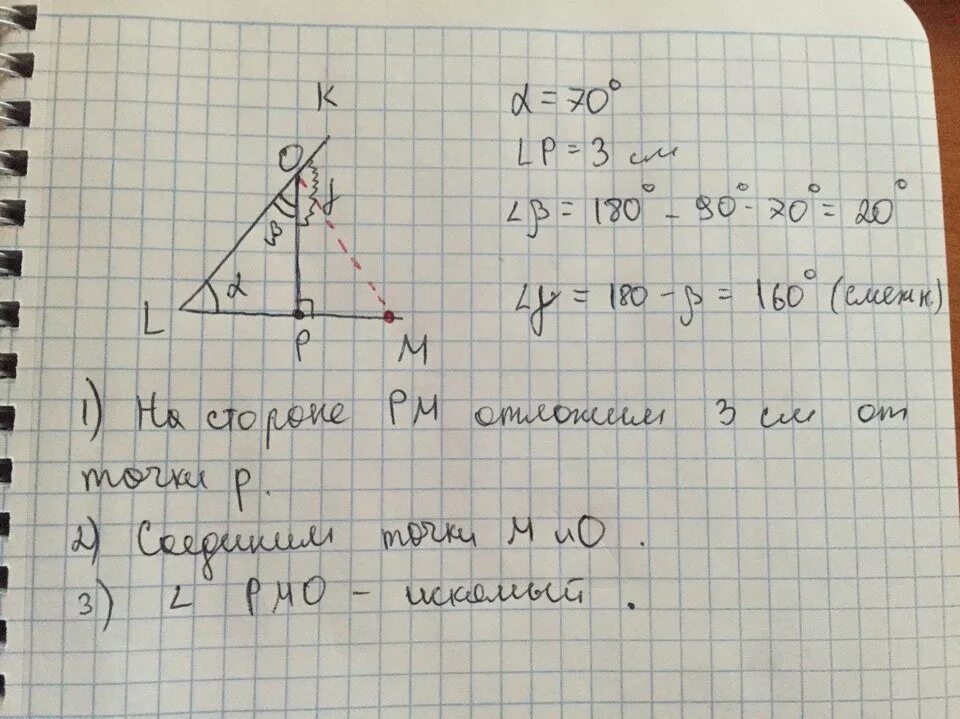 K
O
γ
β
α
L
P
M
α = 70°
LP = 3 см
∠β = 180° - 90° - 70° = 20°
∠γ = 180 - β = 160° (смежн)
1) На стороне PM отложим 3 см от
точки p.
2) Соединим точки M и O.
3) ∠ PMO - искомый.